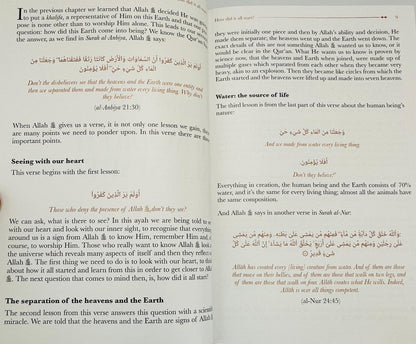 In the previous chapter we learned that Allah ﷻ decided He was
to put a khalifa, a representative of Him on this Earth and this
pose is none other than to worship Him alone. This leads to our
question: how did this Earth come into being? We know the Qur'an
the answer, as we find in Surah al-Anbiya
أَوَلَمْ يَرَ الَّذِينَ كَفَرُوا أَنَّ السَّمَاوَاتِ وَالْأَرْضَ كَانَتَا رَتْقًا فَفَتَقْنَاهُمَا ۖ وَجَعَلْنَا مِنَ
الْمَاءِ كُلَّ شَيْءٍ حَيٍّ ۖ أَفَلَا يُؤْمِنُونَ
Don't the disbelievers see that the heavens and the Earth were one entity and
then we separated them and made from water every living thing. Why don't
they believe?
(al-Anbiya 21:30)
When Allah ﷻ gives us a verse, it is not only one lesson we gain,
are many points we need to ponder upon. In this verse there are
important points.
Seeing with our heart
This verse begins with the first lesson:
أَوَلَمْ يَرَ الَّذِينَ كَفَرُوا
Those who deny the presence of Allah ﷻ, don't they see?
We can ask, what is there to see? In this ayah we are being told
with our heart and look with our inner sight, to recognise that
around us is a sign from Allah ﷻ to know Him, remember Him, and
course, to worship Him. Those who really want to know Allah ﷻ look
the universe which reveals many aspects of itself and then they
Allah ﷻ. The first thing we need to do is to look with our heart, to
about how it all started and learn from this in order to get closer to Allah
ﷻ. The next question that comes to mind then, is, how did it all start?
The separation of the heavens and the Earth
The second lesson from this verse answers this question with a
miracle. We are told that the heavens and the Earth are signs of Allah
How did it all start?
they were initially one piece and then by Allah's ability and decision, He
made them separate; the heavens went up and the Earth went down. The
exact details of this are not something Allah ﷻ wanted us to know, or it
would be clear in the Qur'an. What we know is proven to be correct by
science now, that the heavens and Earth when joined, were made up of
multiple gases which separated from each other when they became very
heavy, akin to an explosion. Then they became like circles from which the
Earth started and the heavens were lifted up and made into seven heavens.
Water: the source of life
The third lesson is from the last part of this verse about the human being's
nature:
وَجَعَلْنَا مِنَ الْمَاءِ كُلَّ شَيْءٍ حَيٍّ
And we made from water every living thing.
أَفَلَا يُؤْمِنُونَ
Don't they believe?
Everything in creation, the human being and the Earth consists of 70%
water, and it's the same for every living thing; almost all animals are the
same.
And Allah ﷻ says in another verse in Surah al-Nur:
وَاللَّهُ خَلَقَ كُلَّ دَابَّةٍ مِّن مَّاءٍ ۖ فَمِنْهُم مَّن يَمْشِي عَلَىٰ بَطْنِهِ وَمِنْهُم مَّن يَمْشِي
عَلَىٰ رِجْلَيْنِ وَمِنْهُم مَّن يَمْشِي عَلَىٰ أَرْبَعٍ ۚ يَخْلُقُ اللَّهُ مَا يَشَاءُ ۚ إِنَّ اللَّهَ عَلَىٰ كُلِّ
شَيْءٍ قَدِيرٌ
Allah has created every [living] creature from water. And of them are those
that move on their bellies, and of them are those that walk on two legs, and
of them are those that walk on four. Allah creates what He wills. Indeed,
Allah is over all things competent.
(al-Nur 24:45)